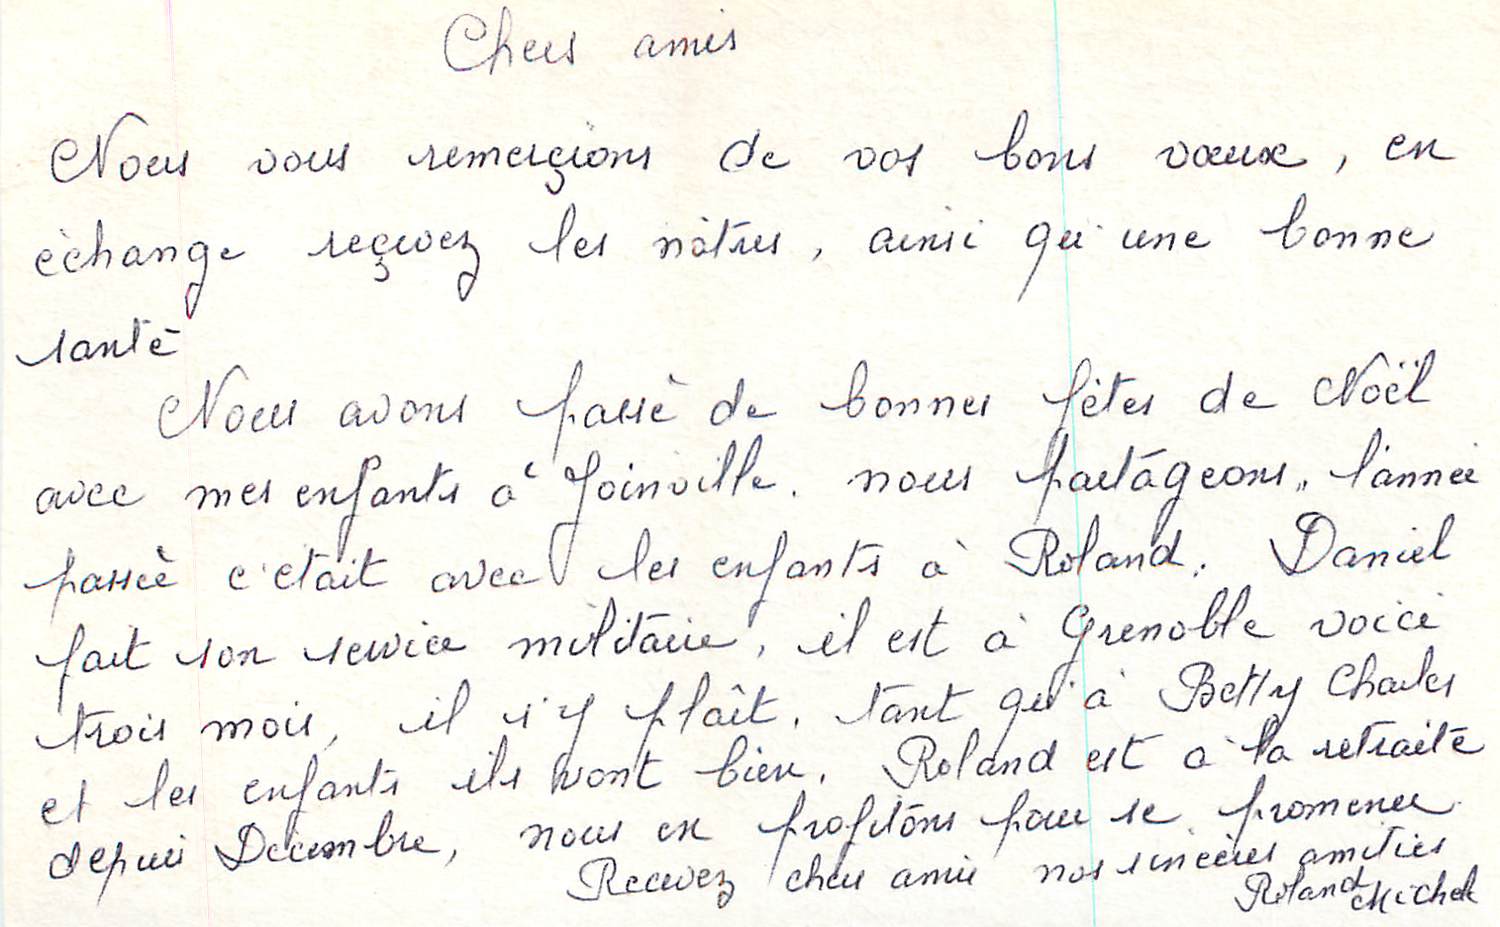 Chers amis
Nous vous remerçions de vos bons vœux, en
échange reçevez les nôtres, ainsi qu'une bonne
santé
Nous avons passé de bonnes fêtes de Noël
avec mes enfants à Joinville. nous partageons, l'année
passée c'était avec les enfants à Roland. Daniel
fait son service militaire, il est à Grenoble voici
trois mois, il s'y plaît. tant qu'à Betty Charles
et les enfants ils vont bien. Roland est à la retraite
depuis Décembre, nous en profitons pour se promener.
Recevez chers amis nos sincères amitiés
Roland Michele